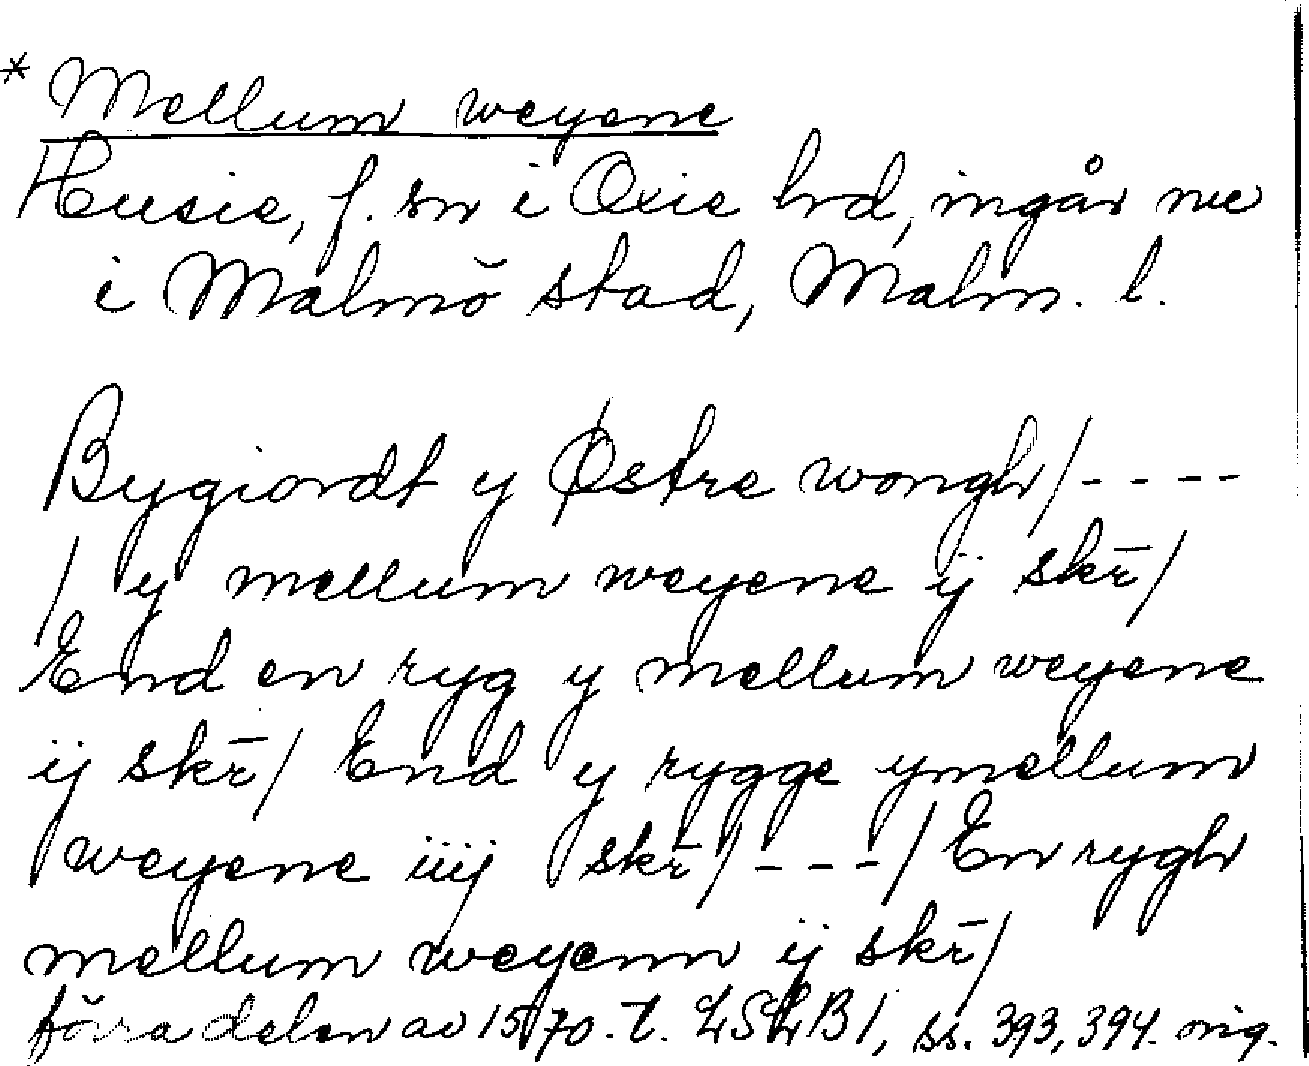 * Mellum weyene
Husie, f. sn i Oxie hrd, ingår nu
i Malmö stad, Malm. l.
Bygiordt y Østre wongh/----
/ y mellum weyene ij skr̄/
End en ryg y mellum weyene
ij skr̄/ End y rygge ymellum
weyene iiij skr̄/---/ En rygh
mellum weyenn ij skr̄/
förra delen av 1570-t. LSLB 1, ss. 393, 394. orig.